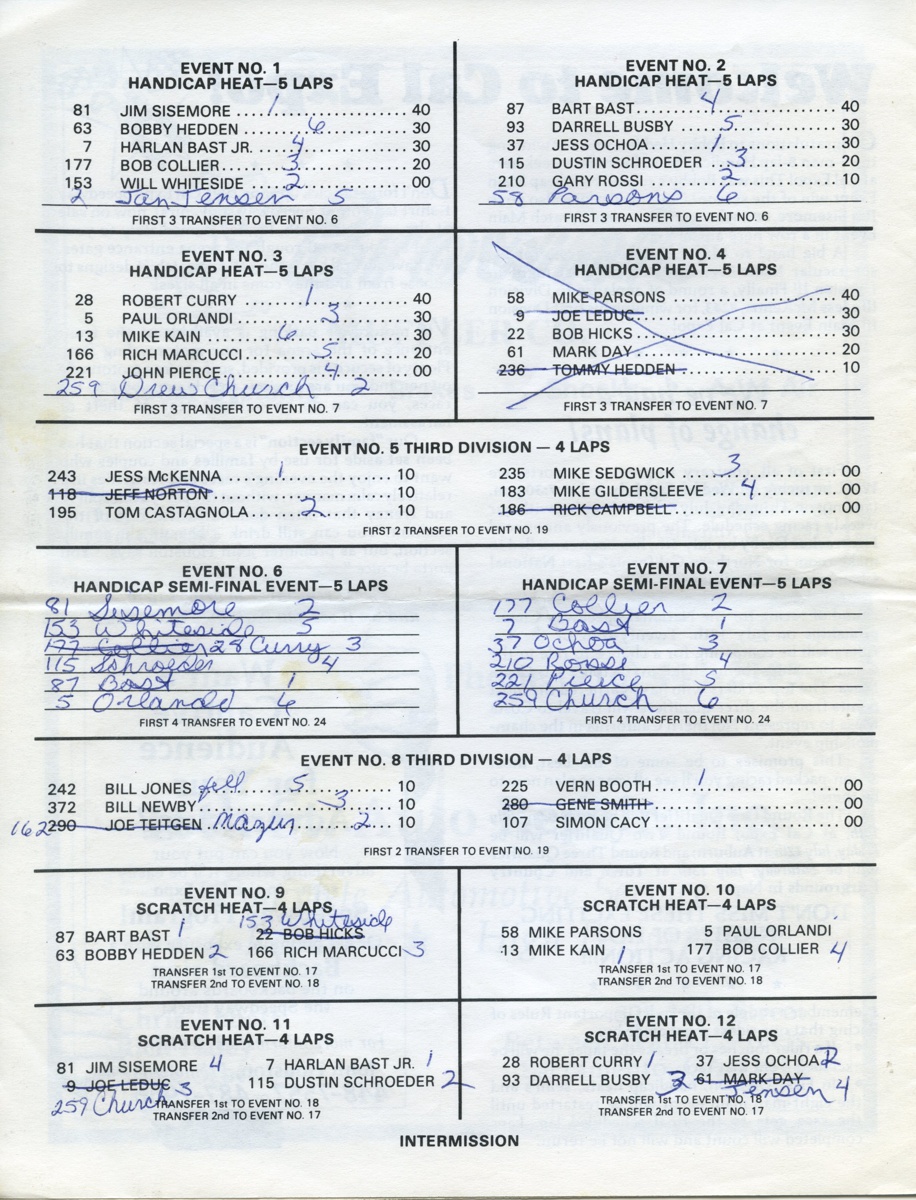 EVENT NO. 1
HANDICAP HEAT—5 LAPS
81 JIM SISEMORE 1 40
63 BOBBY HEDDEN 6 30
7 HARLAN BAST JR. 4 30
177 BOB COLLIER 3 20
153 WILL WHITESIDE 2 00
2 Jan Jensen 5
FIRST 3 TRANSFER TO EVENT NO. 6
EVENT NO. 2
HANDICAP HEAT—5 LAPS
87 BART BAST 4 40
93 DARRELL BUSBY 5 30
37 JESS OCHOA 1 30
115 DUSTIN SCHROEDER 3 20
210 GARY ROSSI 2 10
58 Parsons 6
FIRST 3 TRANSFER TO EVENT NO. 6
EVENT NO. 3
HANDICAP HEAT—5 LAPS
28 ROBERT CURRY 1 40
5 PAUL ORLANDI 3 30
13 MIKE KAIN 6 30
166 RICH MARCUCCI 5 20
221 JOHN PIERCE 4 00
259 Drew Church 2
FIRST 3 TRANSFER TO EVENT NO. 7
EVENT NO. 4
HANDICAP HEAT—5 LAPS
58 MIKE PARSONS 40
9 JOE LEDUC 30
22 BOB HICKS 30
61 MARK DAY 20
236 TOMMY HEDDEN 10
FIRST 3 TRANSFER TO EVENT NO. 7
EVENT NO. 5 THIRD DIVISION—4 LAPS
243 JESS McKENNA 1 10
118 JEFF NORTON 10
195 TOM CASTAGNOLA 2 10
235 MIKE SEDGWICK 3 00
183 MIKE GILDERSLEEVE 4 00
186 RICK CAMPBELL 00
FIRST 2 TRANSFER TO EVENT NO. 19
EVENT NO. 6
HANDICAP SEMI-FINAL EVENT—5 LAPS
81 Sisemore 2
153 Whiteside 5
177 Collier 28 Curry 3
115 Schroeder 4
87 Bast 1
5 Orlando 6
FIRST 4 TRANSFER TO EVENT NO. 24
EVENT NO. 7
HANDICAP SEMI-FINAL EVENT—5 LAPS
177 Collier 2
7 Bast 1
37 Ochoa 3
210 Rossi 4
221 Pierce 5
259 Church 6
FIRST 4 TRANSFER TO EVENT NO. 24
EVENT NO. 8 THIRD DIVISION—4 LAPS
242 BILL JONES fell 5 10
372 BILL NEWBY 3 10
162 290 JOE TEITGEN Mazur 2 10
225 VERN BOOTH 1 00
280 GENE SMITH 00
107 SIMON CACY 00
FIRST 2 TRANSFER TO EVENT NO. 19
EVENT NO. 9
SCRATCH HEAT—4 LAPS
153 Whiteside
87 BART BAST 1 22 BOB HICKS
63 BOBBY HEDDEN 2 166 RICH MARCUCCI 3
TRANSFER 1st TO EVENT NO. 17
TRANSFER 2nd TO EVENT NO. 18
EVENT NO. 10
SCRATCH HEAT—4 LAPS
58 MIKE PARSONS 5 PAUL ORLANDI
13 MIKE KAIN 1 177 BOB COLLIER 4
TRANSFER 1st TO EVENT NO. 17
TRANSFER 2nd TO EVENT NO. 18
EVENT NO. 11
SCRATCH HEAT—4 LAPS
81 JIM SISEMORE 4 7 HARLAN BAST JR. 1
9 JOE LEDUC 115 DUSTIN SCHROEDER 2
259 Church 3
TRANSFER 1st TO EVENT NO. 18
TRANSFER 2nd TO EVENT NO. 17
EVENT NO. 12
SCRATCH HEAT—4 LAPS
28 ROBERT CURRY 1 37 JESS OCHOA 2
93 DARRELL BUSBY 3 61 MARK DAY
Jensen 4
TRANSFER 1st TO EVENT NO. 18
TRANSFER 2nd TO EVENT NO. 17
INTERMISSION